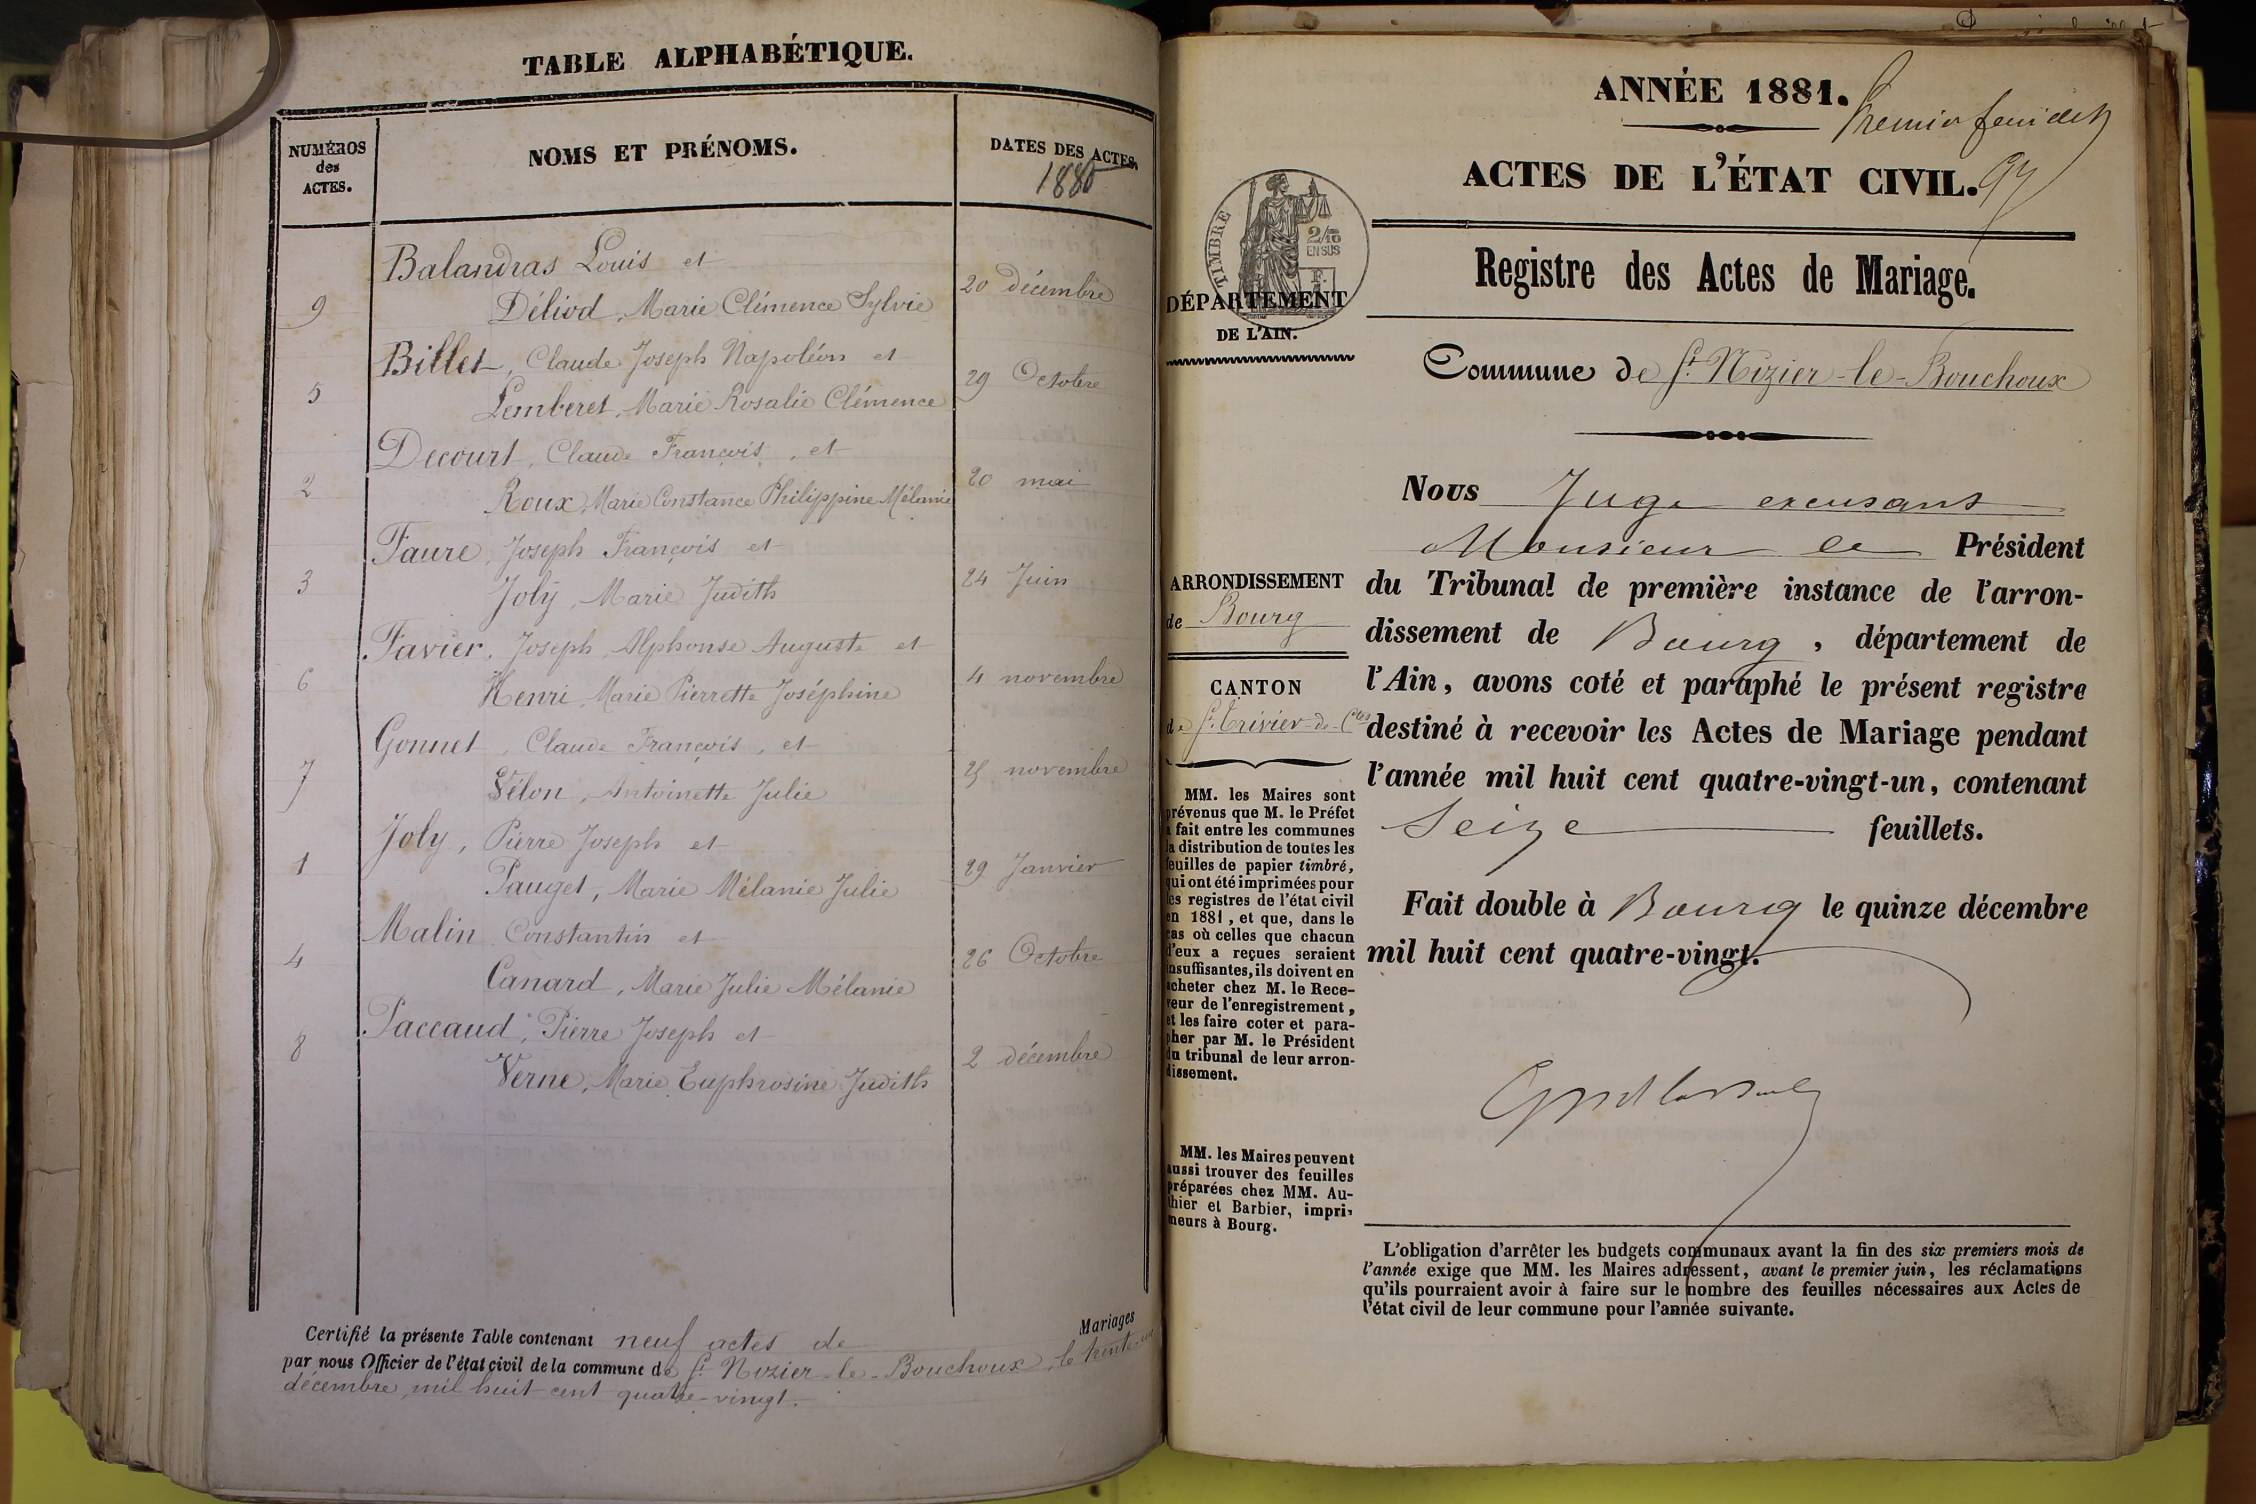 TABLE ALPHABÉTIQUE.
NUMÉROS
des
ACTES.
NOMS ET PRÉNOMS.
DATES DES ACTES.
1880
Balandras Louis et
9 Déliod, Marie Clémence Sylvie 20 décembre
Billet, Claude Joseph Napoléon et
5 Lemberet, Marie Rosalie Clémence 29 Octobre
Decourt, Claude François, et
2 Roux, Marie Constance Philippine Mélanie 20 mai
Faure, Joseph François et
3 Joly, Marie Judith 24 Juin
Favier, Joseph Alphonse Auguste et
6 Henri, Marie Pierrette Joséphine 4 novembre
Gonnet, Claude François, et
7 Vélon, Antoinette Julie 25 novembre
Joly, Pierre Joseph et
1 Pauget, Marie Mélanie Julie 29 Janvier
Malin Constantin et
4 Canard, Marie Julie Mélanie 26 Octobre
Paccaud, Pierre Joseph et
8 Verne, Marie Euphrosine Judith 2 décembre
Certifié la présente Table contenant neuf actes de Mariages
par nous Officier de l'état civil de la commune de St Nizier-le-Bouchoux, le trente-un
décembre, mil huit cent quatre-vingt.
ANNÉE 1881.
Premier feuillet
ACTES DE L'ÉTAT CIVIL.
TIMBRE
2/10
EN SUS
DÉPARTEMENT
DE L'AIN.
Registre des Actes de Mariage.
Commune de St Nizier-le-Bouchoux
ARRONDISSEMENT
de Bourg
CANTON
de St Trivier-de-Ctes
MM. les Maires sont
prévenus que M. le Préfet
a fait entre les communes
la distribution de toutes les
feuilles de papier timbré,
qui ont été imprimées pour
les registres de l'état civil
en 1881, et que, dans le
cas où celles que chacun
d'eux a reçues seraient
insuffisantes, ils doivent en
acheter chez M. le Rece-
veur de l'enregistrement,
et les faire coter et para-
pher par M. le Président
du tribunal de leur arron-
dissement.
MM. les Maires peuvent
aussi trouver des feuilles
préparées chez MM. Au-
thier et Barbier, impri-
meurs à Bourg.
Nous Juge excusant
Monsieur le Président
du Tribunal de première instance de l'arron-
dissement de Bourg, département de
l'Ain, avons coté et paraphé le présent registre
destiné à recevoir les Actes de Mariage pendant
l'année mil huit cent quatre-vingt-un, contenant
Seize feuillets.
Fait double à Bourg le quinze décembre
mil huit cent quatre-vingt.
L'obligation d'arrêter les budgets communaux avant la fin des six premiers mois de
l'année exige que MM. les Maires adressent, avant le premier juin, les réclamations
qu'ils pourraient avoir à faire sur le nombre des feuilles nécessaires aux Actes de
l'état civil de leur commune pour l'année suivante.